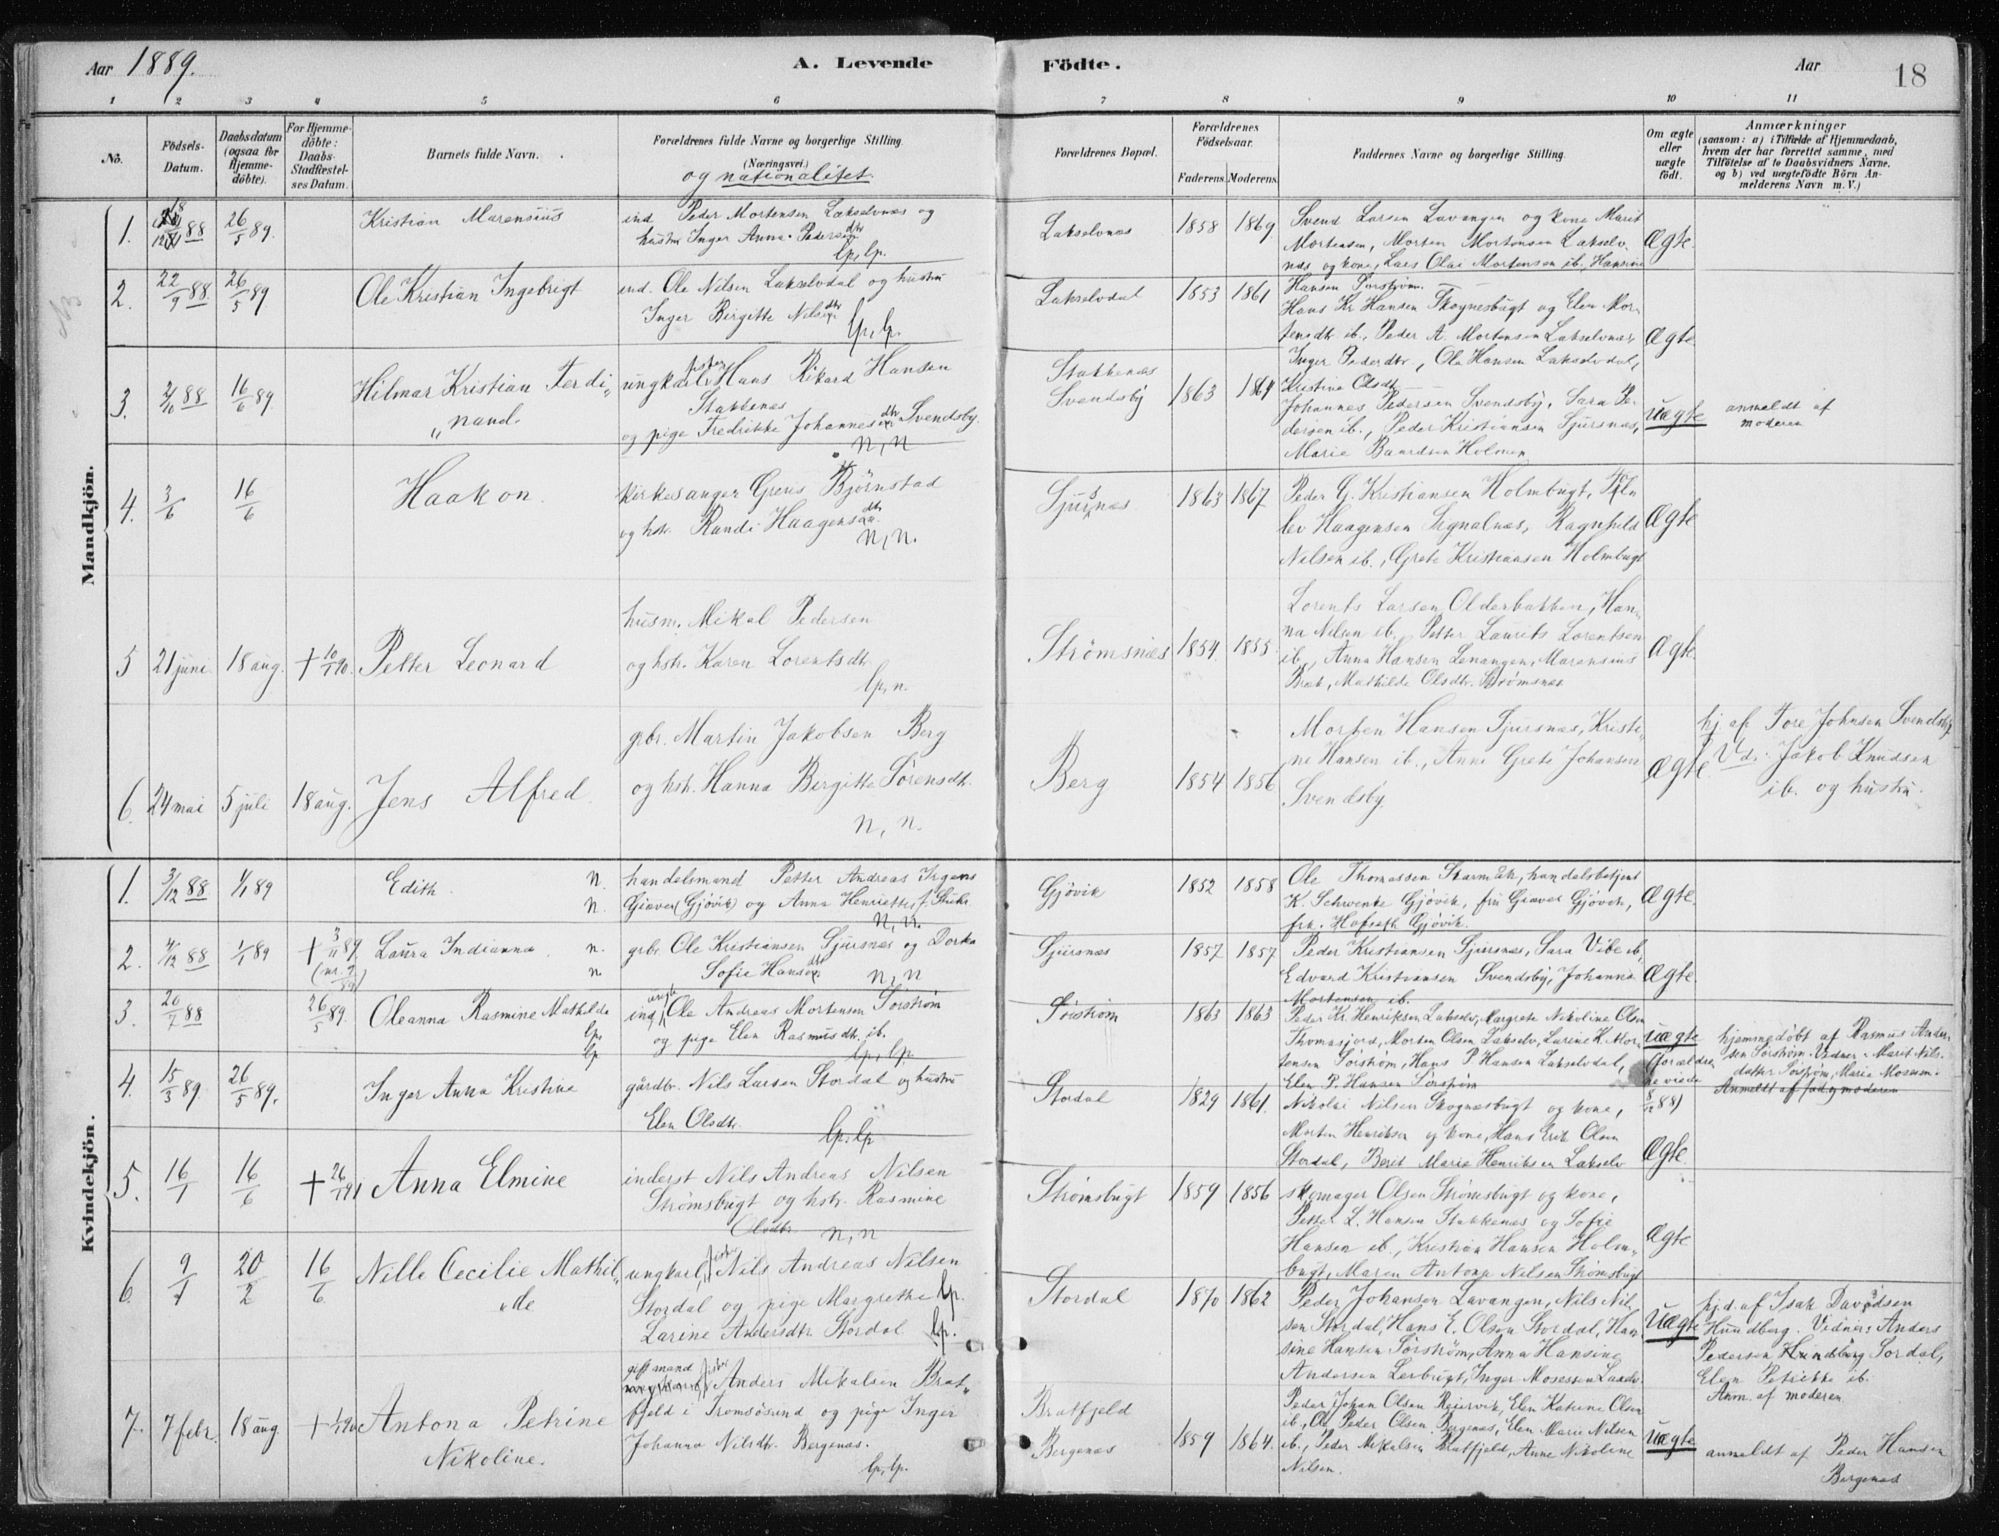 Aar 1889. A. Levende Födte. Aar 18
1 2 3 4 5 6 7 8 9 10 11
No.
Födsels-Datum.
Daabsdatum (ogsaa for Hjemme-döbte).
For Hjemme-döbte: Daabs-Stadfæstel-ses Datum.
Barnets fulde Navn.
Forældrenes fulde Navne og borgerlige Stilling
(Næringsvei.)
og nationalitet.
Forældrenes Bopæl.
Forældrenes Födselsaar.
Faderens Moderens
Faddernes Navne og borgerlige Stilling.
Om ægte eller uægte födt.
Anmærkninger
(saasom: a) i Tilfælde af Hjemmedaab,
hvem der har forrettet samme, med
Tilföielse af to Daabsvidners Navne.
og b) ved uægtefödte Börn An-
melderens Navn m. V.)
Mandkjön.
1. 88 26/5 89. Kristian Marensius
ind Peder Mortensen Lakselvnæs og
hustru Inger Anna Pedersdtr
lp, lp.
Lakselvnæs 1858 1869
Svend Larsen Lavangen og kone Marit
Mortensen, Morten Mortensen Lakselv
næs og kone, Lars Olai Mortensen ib. Hansine
Hansen Sørstrøm.
Ægte.
2. 22/9 88. 26/5 89 Ole Kristian Ingebrigt
ind. Ole Nilsen Lakselvdal og hustru
Inger Bergitte Nilsdtr
lp, lp.
Lakselvdal 1853 1861
Hans Kr Hansen Skognesbugt og Elen Mor-
tensdtr ib., Peder A. Mortensen Lakselvnæs,
Inger Pedersdtr, Ole Hansen Lakselvdal,
Kristine Olsdtr
Ægte
3. 2/10 88 16/6 89. Hilmar Kristian Ferdi„
„nand.
ungkarl fisker Hans Rikard Hansen
Stakkenæs
og pige Fredrikke Johannesdtr Svendsby.
n, n
Stakkenæs
Svendsby 1863 1864
Johannes Pedersen Svendsby, Sara Pe-
dersen ib., Peder Kristiansen Sjursnæs,
Marie Baardsen Holmen
Uægte anmeldt af
moderen
4. 3/6 16/6 Haakon.
kirkesanger Greris Bjørnstad
og hstr. Randi Haagensdtr
n, n.
Sjursnæs 1863 1867
Peder G. Kristiansen Holmbugt,
lev Haagensen Segnalnæs, Ragnhild
Nilsen ib., Grete Kristiansen Holmbugt
Ægte
5 21 juni 18 aug. + 10/1 90. Petter Leonard
husm. Mikal Pedersen
og hstr. Karen Lorentsdtr.
lp, n.
Strømsnæs 1854 1855
Lorents Larsen Olderbakken, Han-
na Nilsen ib. Petter Laurits Lorentsen
ib., Anna Hansen Lenangen, Marensius
Brak, Mathilde Olsdtr. Strømsnæs
Ægte.
6. 24 mai 5 juli 18 aug. Jens Alfred
grbr. Martin Jakobsen Berg
og hstr. Hanna Bergitte Sørensdtr.
n, n.
Berg 1854 1856
Morten Hansen Sjursnæs, Kristi-
ne Hansen ib., Anne Grete Johansen
Svendsby
Ægte.
hj af Tore Johnsen Svendsby
Vd. Jakob Knudsen
ib. og hustru.
Kvindekjön.
1. 3/12 88 1/1 89 Edith. n.
n.
handelsmand Petter Andreas Irgens
Giæver (Gjøvik) og Anna Henriette f.
n, n.
Gjøvik 1852 1858
Ole Thomassen Skarmæk, handelsbetjent
K. Schwenke Gjøvik, fru Giæver Gjøvik,
frk. Hofseth Gjøvik.
Ægte.
2. 4/12 88 1/1 89 + 3/11 89. (nr. 9/89) Laura Indianna n.
n
grbr. Ole Kristiansen Sjursnæs og Dorka
Sofie Hansdtr n, n
Sjursnæs 1857 1857
Peder Kristiansen Sjursnæs, Sara Vibe ib
Edvard Kristiansen Svendsby, Johanna
Mortensen ib.
Ægte
3. 20/7 88 26/5 89. Oleanna Rasmine Mathilde
lp,
lp
ind. ungk. Ole Andreas Mortensen Sørstrøm
og pige Elen Rasmusdtr. ib.
lp, lp.
Sørstrøm 1863 1863
Peder Kr. Henriksen Lakselv, Margrete Nikoline Olsen
Thomasjord, Morten Olsen Lakselv, Larine K. Mor-
tensen Sørstrøm, Hans P. Hansen Lakselvdal,
Elen P. Hansen Sørstrøm
Uægte
(forældrene viede 8/12 88)
hjemmedøbt af Rasmus Ander-
sen Sørstrøm. Vidner: Marit Nils-
datter Sørstrøm, Marie
Anmeldt af fad. og moderen
4. 15/3 89. 26/5 89. Inger Anna Kristine
gårdbr. Nils Larsen Stordal og hustru
Elen Olsdtr.
lp, lp
Stordal 1829 1861.
Nikolai Nilsen Skognæsbugt og kone,
Morten Henriksen og kone, Hans Erik Olsen
Stordal, Berit Marie Henriksen Lakselv
Ægte.
5. 16/1 16/6 + 26/1 91 Anna Elmine
inderst Nils Andreas Nilsen
Strømsbugt og hstr. Rasmine
Olsdtr n, n
Strømsbugt 1859 1856
skomager Olsen Strømsbugt og kone,
Petter L. Hansen Stakkenæs og Sofie
Hansen ib., Kristian Hansen Holm„
bugt, Maren Antona Nilsen Strømsbugt
Ægte
6. 9/1 20/2 16/6 Nille Cecilie Mathil„
„de
ungkarl, fisker Nils Andreas Nilsen
Stordal og pige Margrethe lp.
Larine Andersdtr Stordal lp.
Stordal 1870 1862
Peder Johansen Lavangen, Nils Nil-
sen Stordal, Hans E. Olsen Stordal, Han-
sine Hansen Sørstrøm, Anna Hansine
Andersen Lerbugt, Inger Mosessen
Uægte
hj.d. af Isak Davidsen
Hundberg. Vidner: Anders
Pedersen Hundberg Sordal,
Elen ib.
Anm. af moderen
7. 7 febr. 18 aug + 90 Antona Petrine
Nikoline.
gift mand
fisker Anders Mikalsen Brat„
fjeld i Tromsøsund og pige Inger
Johanna Nilsdtr. Bergenæs.
lp, lp.
Bratfjeld
Bergenæs 1859 1864.
Peder Johan Olsen Reiervik, Elen Katrine Olsen
ib., Ole Peder Olsen Bergenæs, Elen Marie Nilsen
ib., Peder Mikalsen Bratfjeld, Anne Nikoline
Nilsen.
Uægte
anmeldt af Peder Hansen
Bergenæs